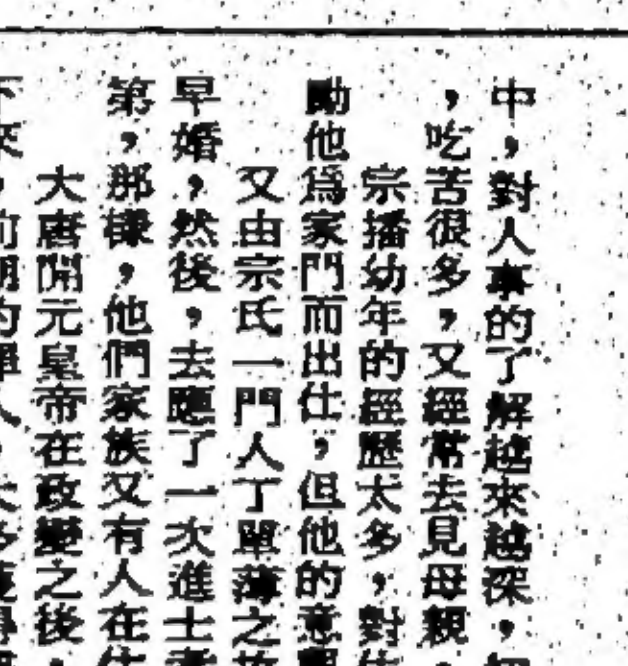 中，對人事的了解越來越深，
，吃苦很多，又經常去見母親，
宗播幼年的經歷太多，對
勵他爲家門而出仕，但他的意
又由宗氏一門人丁單薄之故
早婚，然後，去應了一次進士考
第，那樣，他們家族又有人在仕
大唐開元皇帝在政變之後，
下來，前朝的